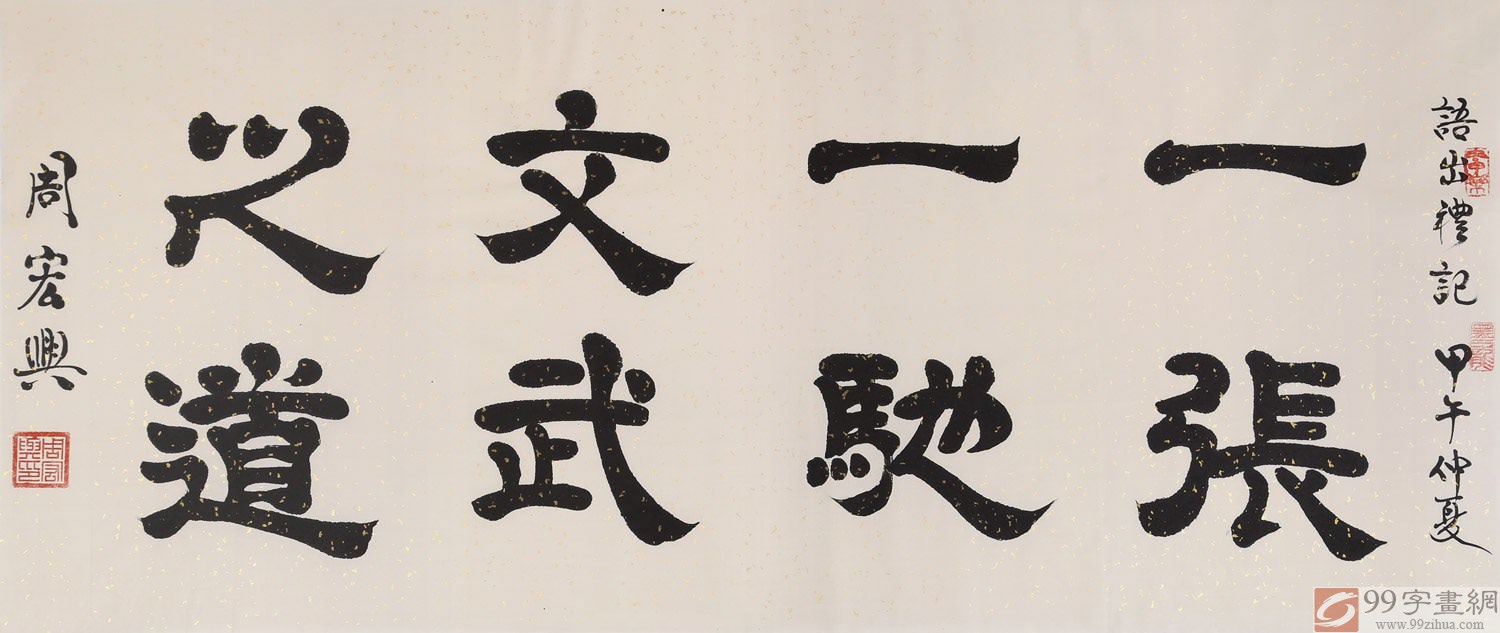 語出禮記 甲午仲夏
一張
一馳
文武
之道
周宏興
99字畫網
www.99zihua.com